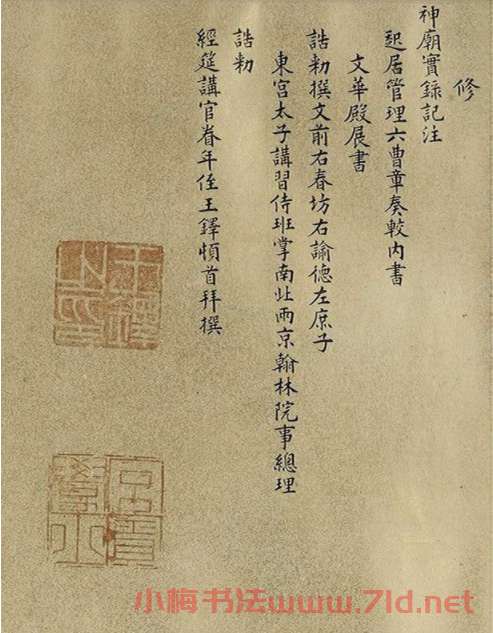 修
神廟實錄記注
起居管理六曹章奏較內書
文華殿展書
誥勅撰文前右春坊右諭德左庶子
東宮太子講習侍班掌南北兩京翰林院事總理
誥勅
經筵講官眷年侄王鐸頓首拜撰
小梅书法www.7ld.net